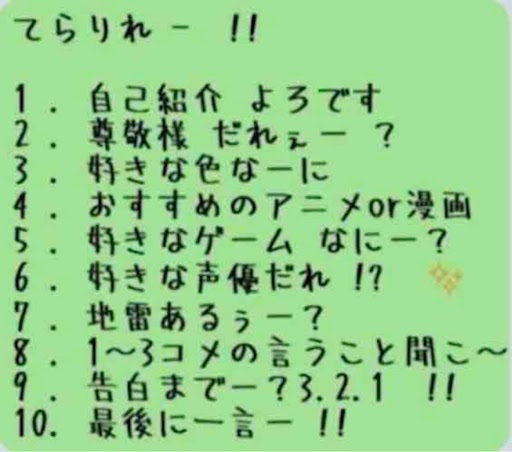 てらりれー !!
1. 自己紹介 よろです
2. 尊敬様 だれぇー ?
3. 好きな色なーに
4. おすすめのアニメor漫画
5. 好きなゲーム なにー?
6. 好きな声優だれ !? ✨
7. 地雷あるぅー?
8. 1〜3コメの言うこと聞こ〜
9. 告白までー?3.2.1 !!
10. 最後に一言ー !!